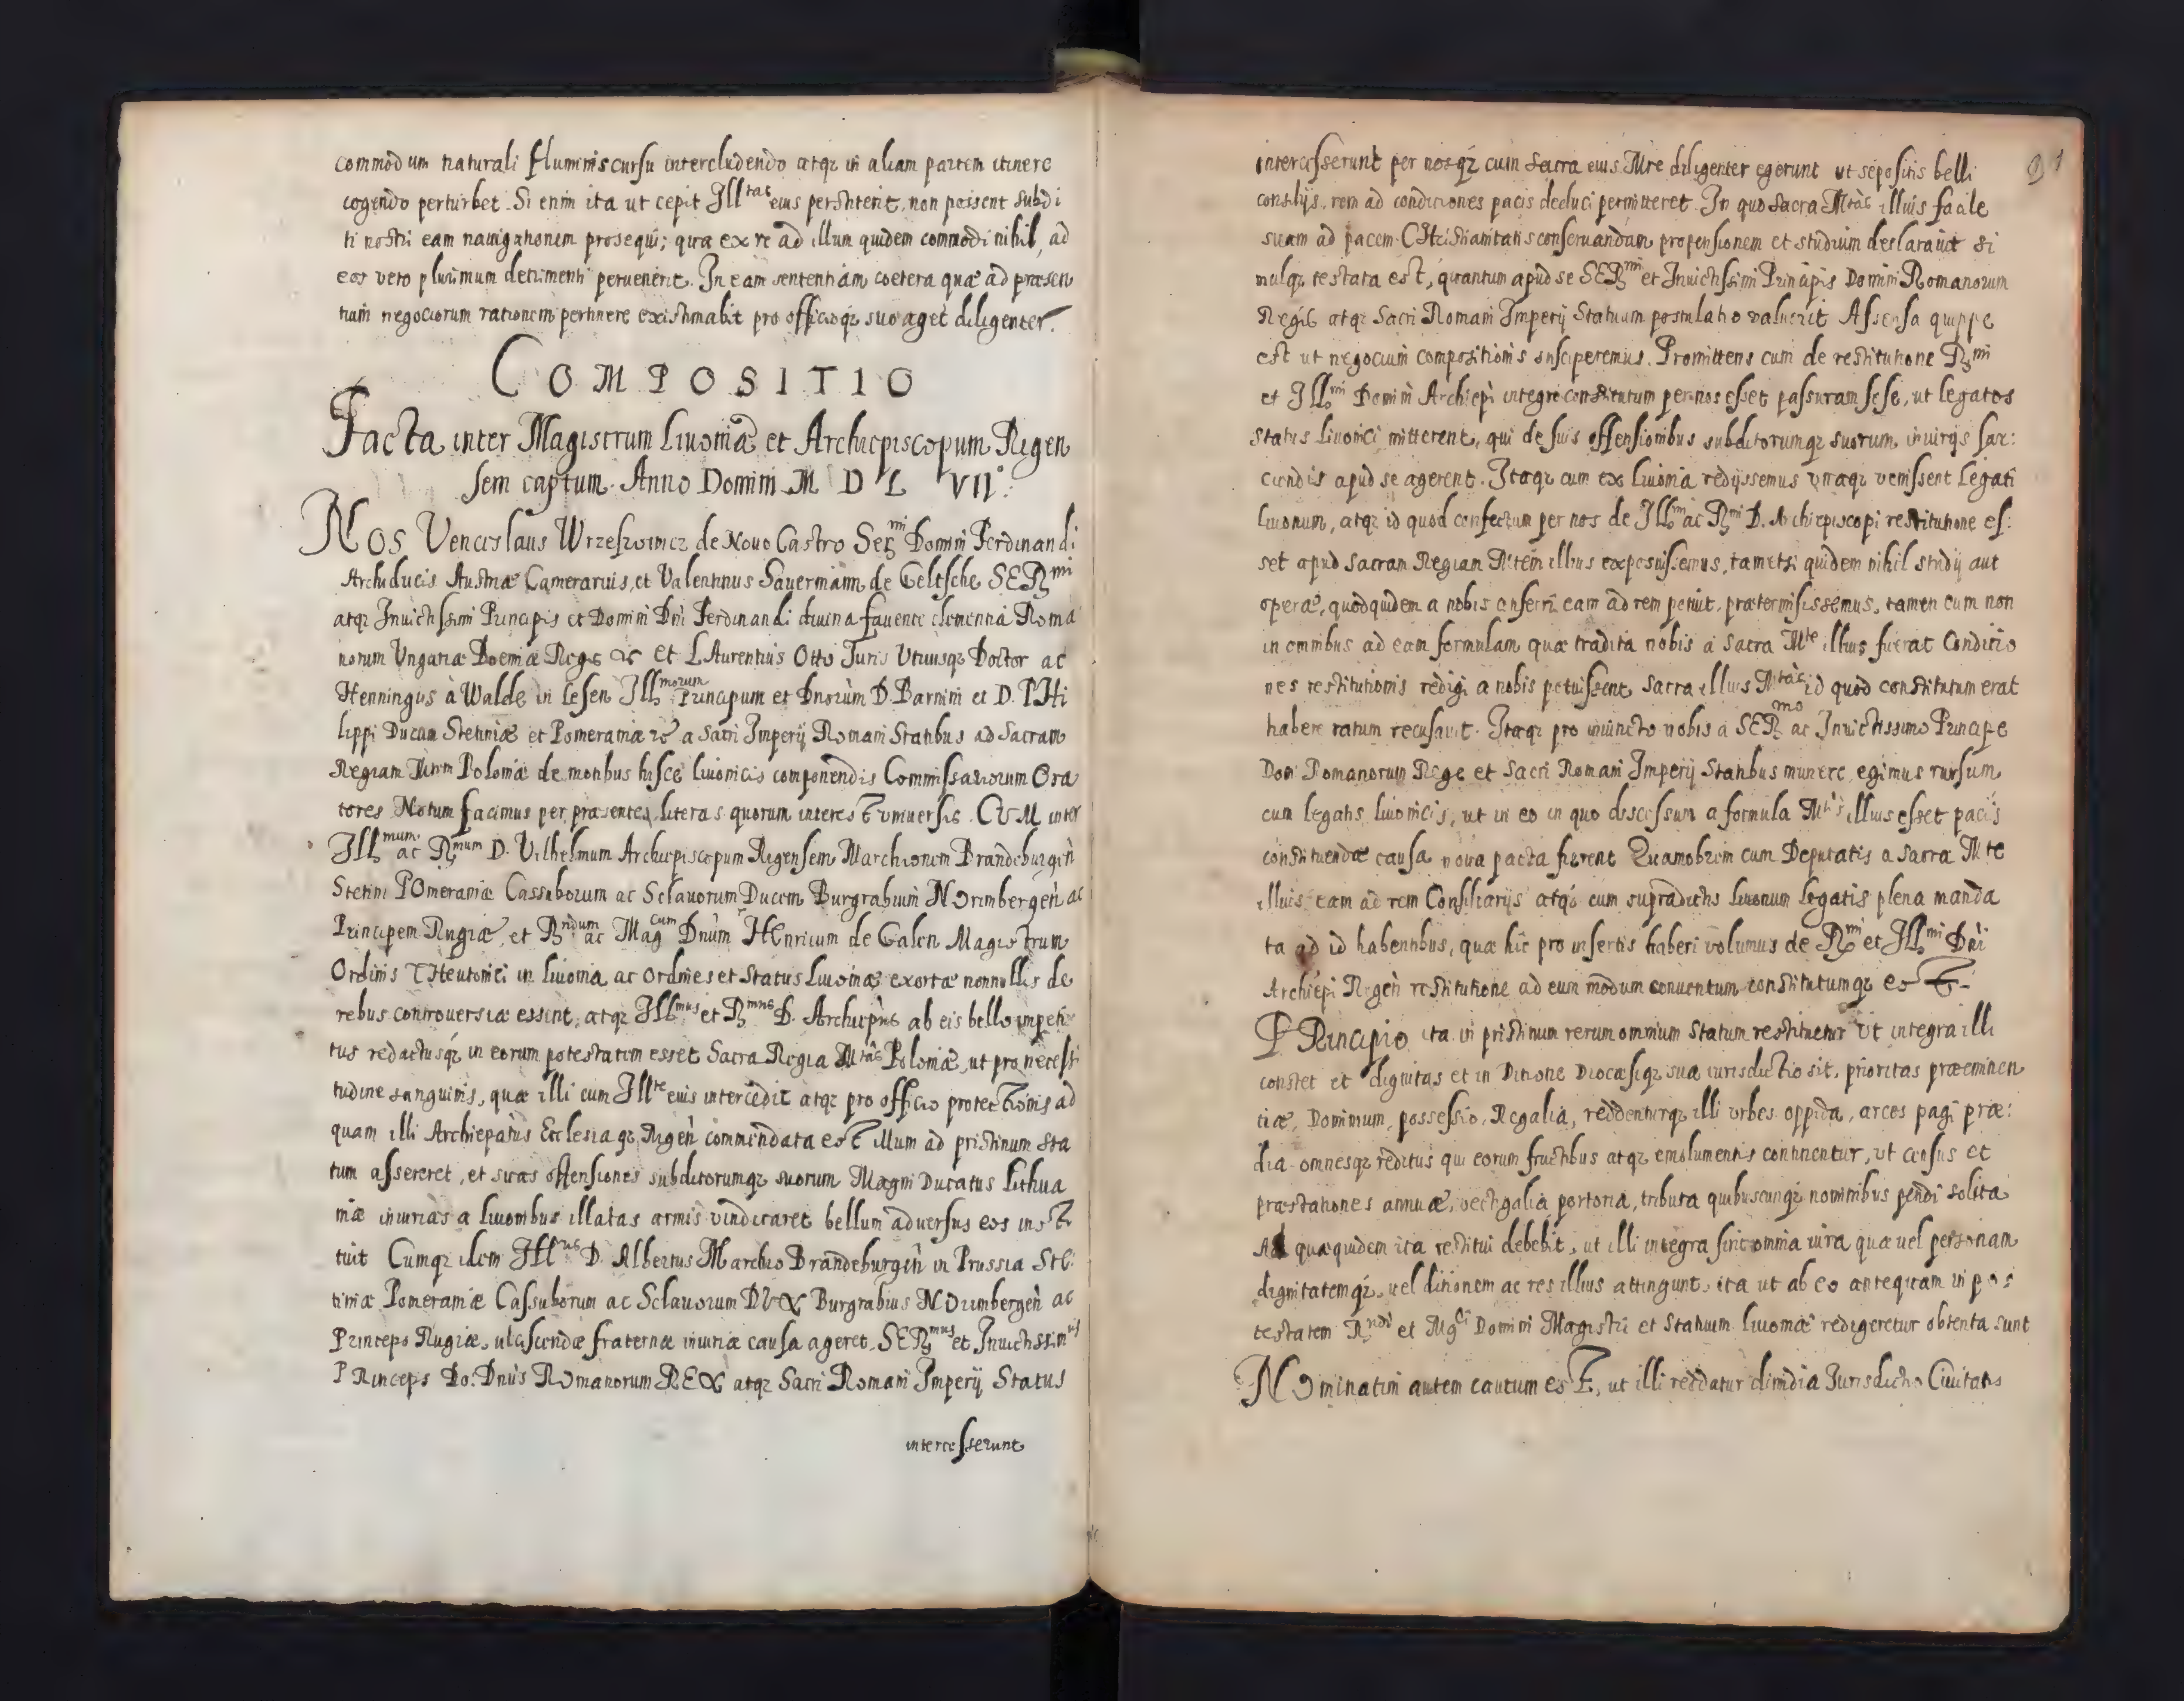 commodum naturali fluminis cursu intercludendo atqz in aliam partem itinere
cogendo perturbet. Si enim ita ut cepit Ill^tas eius perstiterit, non possent subdi
ti nostri eam nauigationem prosequi; qua ex re ad illum quidem commodi nihil, ad
eos vero plurimum detrimenti peruenerit. In eam sententiam coetera quæ ad præsen
tium negociorum rationem pertinere existimabit pro officioqz suo aget diligenter.
COMPOSITIO
Facta inter Magistrum Liuoniæ et Archiepiscopum Rigen
sem captum. Anno Domini M D L VII°.
NOS Venceslaus Wrzesowicz de Novo Castro Ser^mi Domini Ferdinandi
Archiducis Austriæ Camerarius, et Valentinus Sauermann de Geltsche SER^mi
atqz Inuictissimi Principis et Domini Dni Ferdinandi diuina fauente clementia Roma
norum Ungariæ Boemiæ Regis &c et LAurentius Otto Juris Utriusqz Doctor ac
Henningus à Walde in Lesen Ill^morum Principum et Dnorum D. Barnimi et D. PHi
lippi Ducum Stetiniæ et Pomeraniæ &c a Sacri Imperij Romani Statibus ad Sacram
Regiam Mtem Poloniæ de motibus hisce liuonicis componendis Commissariorum Ora
tores Notum facimus per præsentes literas quorum interest vniuersis. CUM inter
Ill^mum ac R^mum D. Vilhelmum Archiepiscopum Rigensem Marchionem Brandeburgen
Stetini POmeraniæ Cassuborum ac Sclauorum Ducem Burgrabium NOrimbergen ac
Principem Rugiæ, et R^ndum ac Mag^cum Dnum HEnricum de Galen Magistrum
Ordinis THeutonici in liuonia ac Ordines et Status Liuoniæ exortæ nonnullis de
rebus controuersiæ essent, atqz Ill^mus et R^mus D. Archiepus ab eis bello impeti
tus redactusqz in eorum potestatem esset Sacra Regia M^tas Poloniæ, ut pro necessi
tudine sanguinis, quæ illi cum Ill^te eius intercedit atqz pro officio protectionis ad
quam illi Archiepatus Ecclesiaqz Rigen commendata est illum ad pristinum sta
tum assereret, et suas offensiones subditorumqz suorum Magni Ducatus Lithua
niæ iniurias a liuonibus illatas armis vindicaret bellum aduersus eos insti
tuit Cumqz idem Ill^us D. Albertus Marchio Brandeburgen in Prussia Ste
tiniæ Pomeraniæ Cassuborum ac Sclauorum DUX Burgrabius NOrimbergen ac
Princeps Rugiæ, ulciscendæ fraternæ iniuriæ causa ageret. SER^mus et Inuictissim^us
PRinceps Do: Dnus ROmanorum REX atqz Sacri Romani Imperij Status
intercesserunt
91
intercesserunt per nosqz cum Sacra eius Mte diligenter egerunt ut sepositis belli
consilijs, rem ad conditiones pacis deduci permitteret. In quo Sacra M^tas illius facile
suam ad pacem CHristianitatis conseruandam propensionem et studium declarauit si
mulqz testata est, quantum apud se SER^mi et Inuictissimi Principis Domini Romanorum
Regis atqz Sacri Romani Imperij Statuum postulatio valuerit Assensa quippe
est ut negocium compositionis susciperemus. Promittens cum de restitutione R^mi
et Ill^mi Domini Archiepi integre constitutum per nos esset passuram sese, ut legatos
Status liuonici mitterent, qui de suis offensionibus subditorumqz suorum iniurijs sar:
ciendis apud se agerent. Itaqz cum ex liuonia redijssemus vnaqz venissent Legati
liuonum, atqz id quod confectum per nos de Ill^mi ac R^mi D. Archiepiscopi restitutione es:
set apud sacram Regiam Mtem illius exposuissemus, tametsi quidem nihil studij aut
operæ, quodquidem a nobis conferri eam ad rem potuit, prætermisissemus, tamen cum non
in omnibus ad eam formulam quæ tradita nobis a sacra M^te illius fuerat Conditio
nes restitutionis redigi a nobis potuissent, Sacra illius M^tas id quod constitutum erat
habere ratum recusauit. Itaqz pro iniuncto nobis a SER^mo ac Inuictissimo Principe
Don Romanorum Rege et Sacri Romani Imperij Statibus munere, egimus rursum
cum legatis liuonicis, ut in eo in quo discessum a formula M^tis illius esset pacis
constituendæ causa noua pacta fierent Quamobrem cum Deputatis a sacra Mte
illius eam ad rem Consiliarijs atqz cum supradictis liuonum legatis plena manda
ta ad id habentibus, quæ hic pro insertis haberi volumus de R^mi et Ill^mi Dni
Archiepi Rigen restitutione ad eum modum conuentum constitutumqz est.
PRincipio ita in pristinum rerum omnium Statum restituetur Ut integra illi
constet et dignitas et in Ditione Diocæsiqz sua iurisdictio sit, prioritas præeminen
tiæ, Dominium, possessio, Regalia, reddenturqz illi urbes oppida, arces pagi præ:
dia omnesqz reditus qui eorum fructibus atqz emolumentis continentur, ut census et
præstationes annuæ, vectigalia portoria, tributa quibuscunqz nominibus pendi solita
Ad quæquidem ita restitui debebit, ut illi integra sint omnia iura quæ uel personam
dignitatemqz, uel ditionem ac res illius attingunt, ita ut ab eo antequam in po
testatem R^ndi et Mg^ci Domini Magistri et Statuum liuoniæ redigeretur obtenta sunt
NOminatim autem cautum est, ut illi reddatur dimidia Jurisdictio Ciuitatis